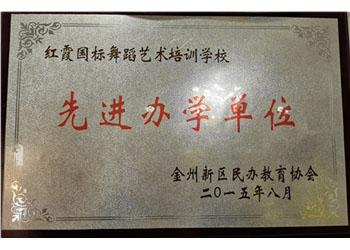 红霞国标舞蹈艺术培训学校
先进办学单位
金州新区民办教育协会
二〇一五年八月